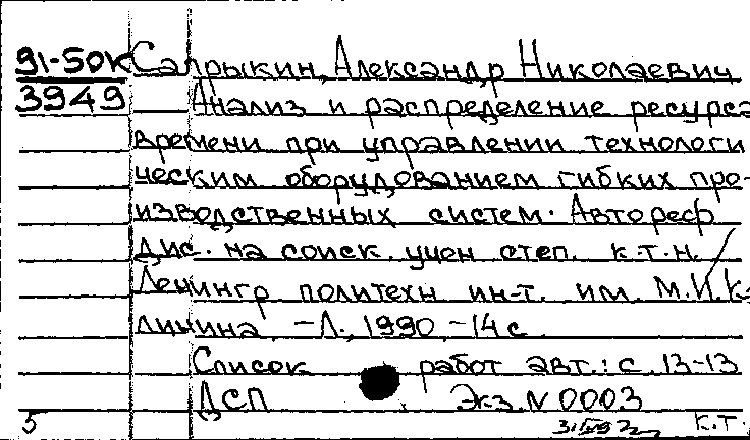 91-50к Сапрыкин, Александр Николаевич
3949 Анализ и распределение ресурса
времени при управлении технологи
ческим оборудованием гибких про-
изводственных систем. Автореф
дис. на соиск. учен степ. к.т.н. /
Ленингр политехн ин-т. им. М.И.Ка
линина. – Л., 1990 – 14 с
Список работ авт.: с. 13-13
ДСП Экз. N 0003
5 к.т.